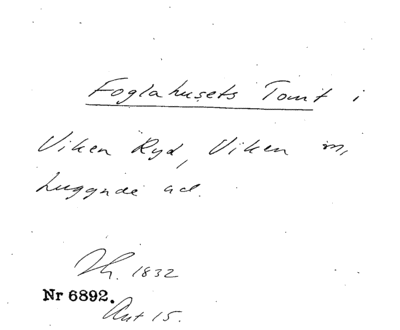 Foglahusets Tomt i
Viken Ryd, Viken sn,
Luggude hd.
Th. 1832
Nr 6892.
Ant 15.